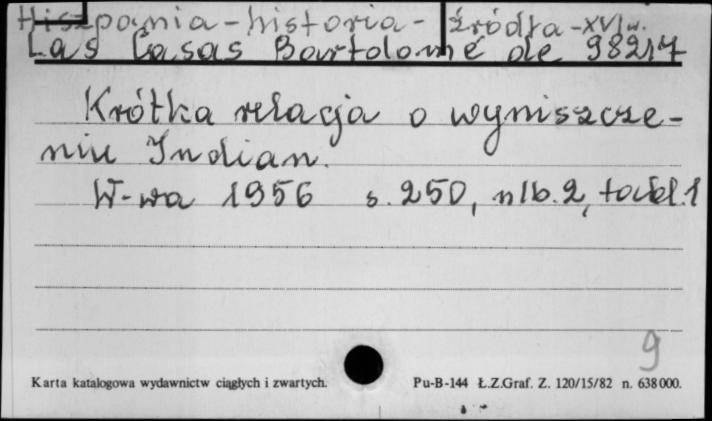 Hiszpania - historia - źródła - XVI w.
Las Casas Bartolomé de 98217
Krótka relacja o wyniszcze-
niu Indian.
W-wa 1956 s. 250, nlb. 2, tabl. 1
9
Karta katalogowa wydawnictw ciągłych i zwartych. Pu-B-144 Ł.Z.Graf. Z. 120/15/82 n. 638 000.